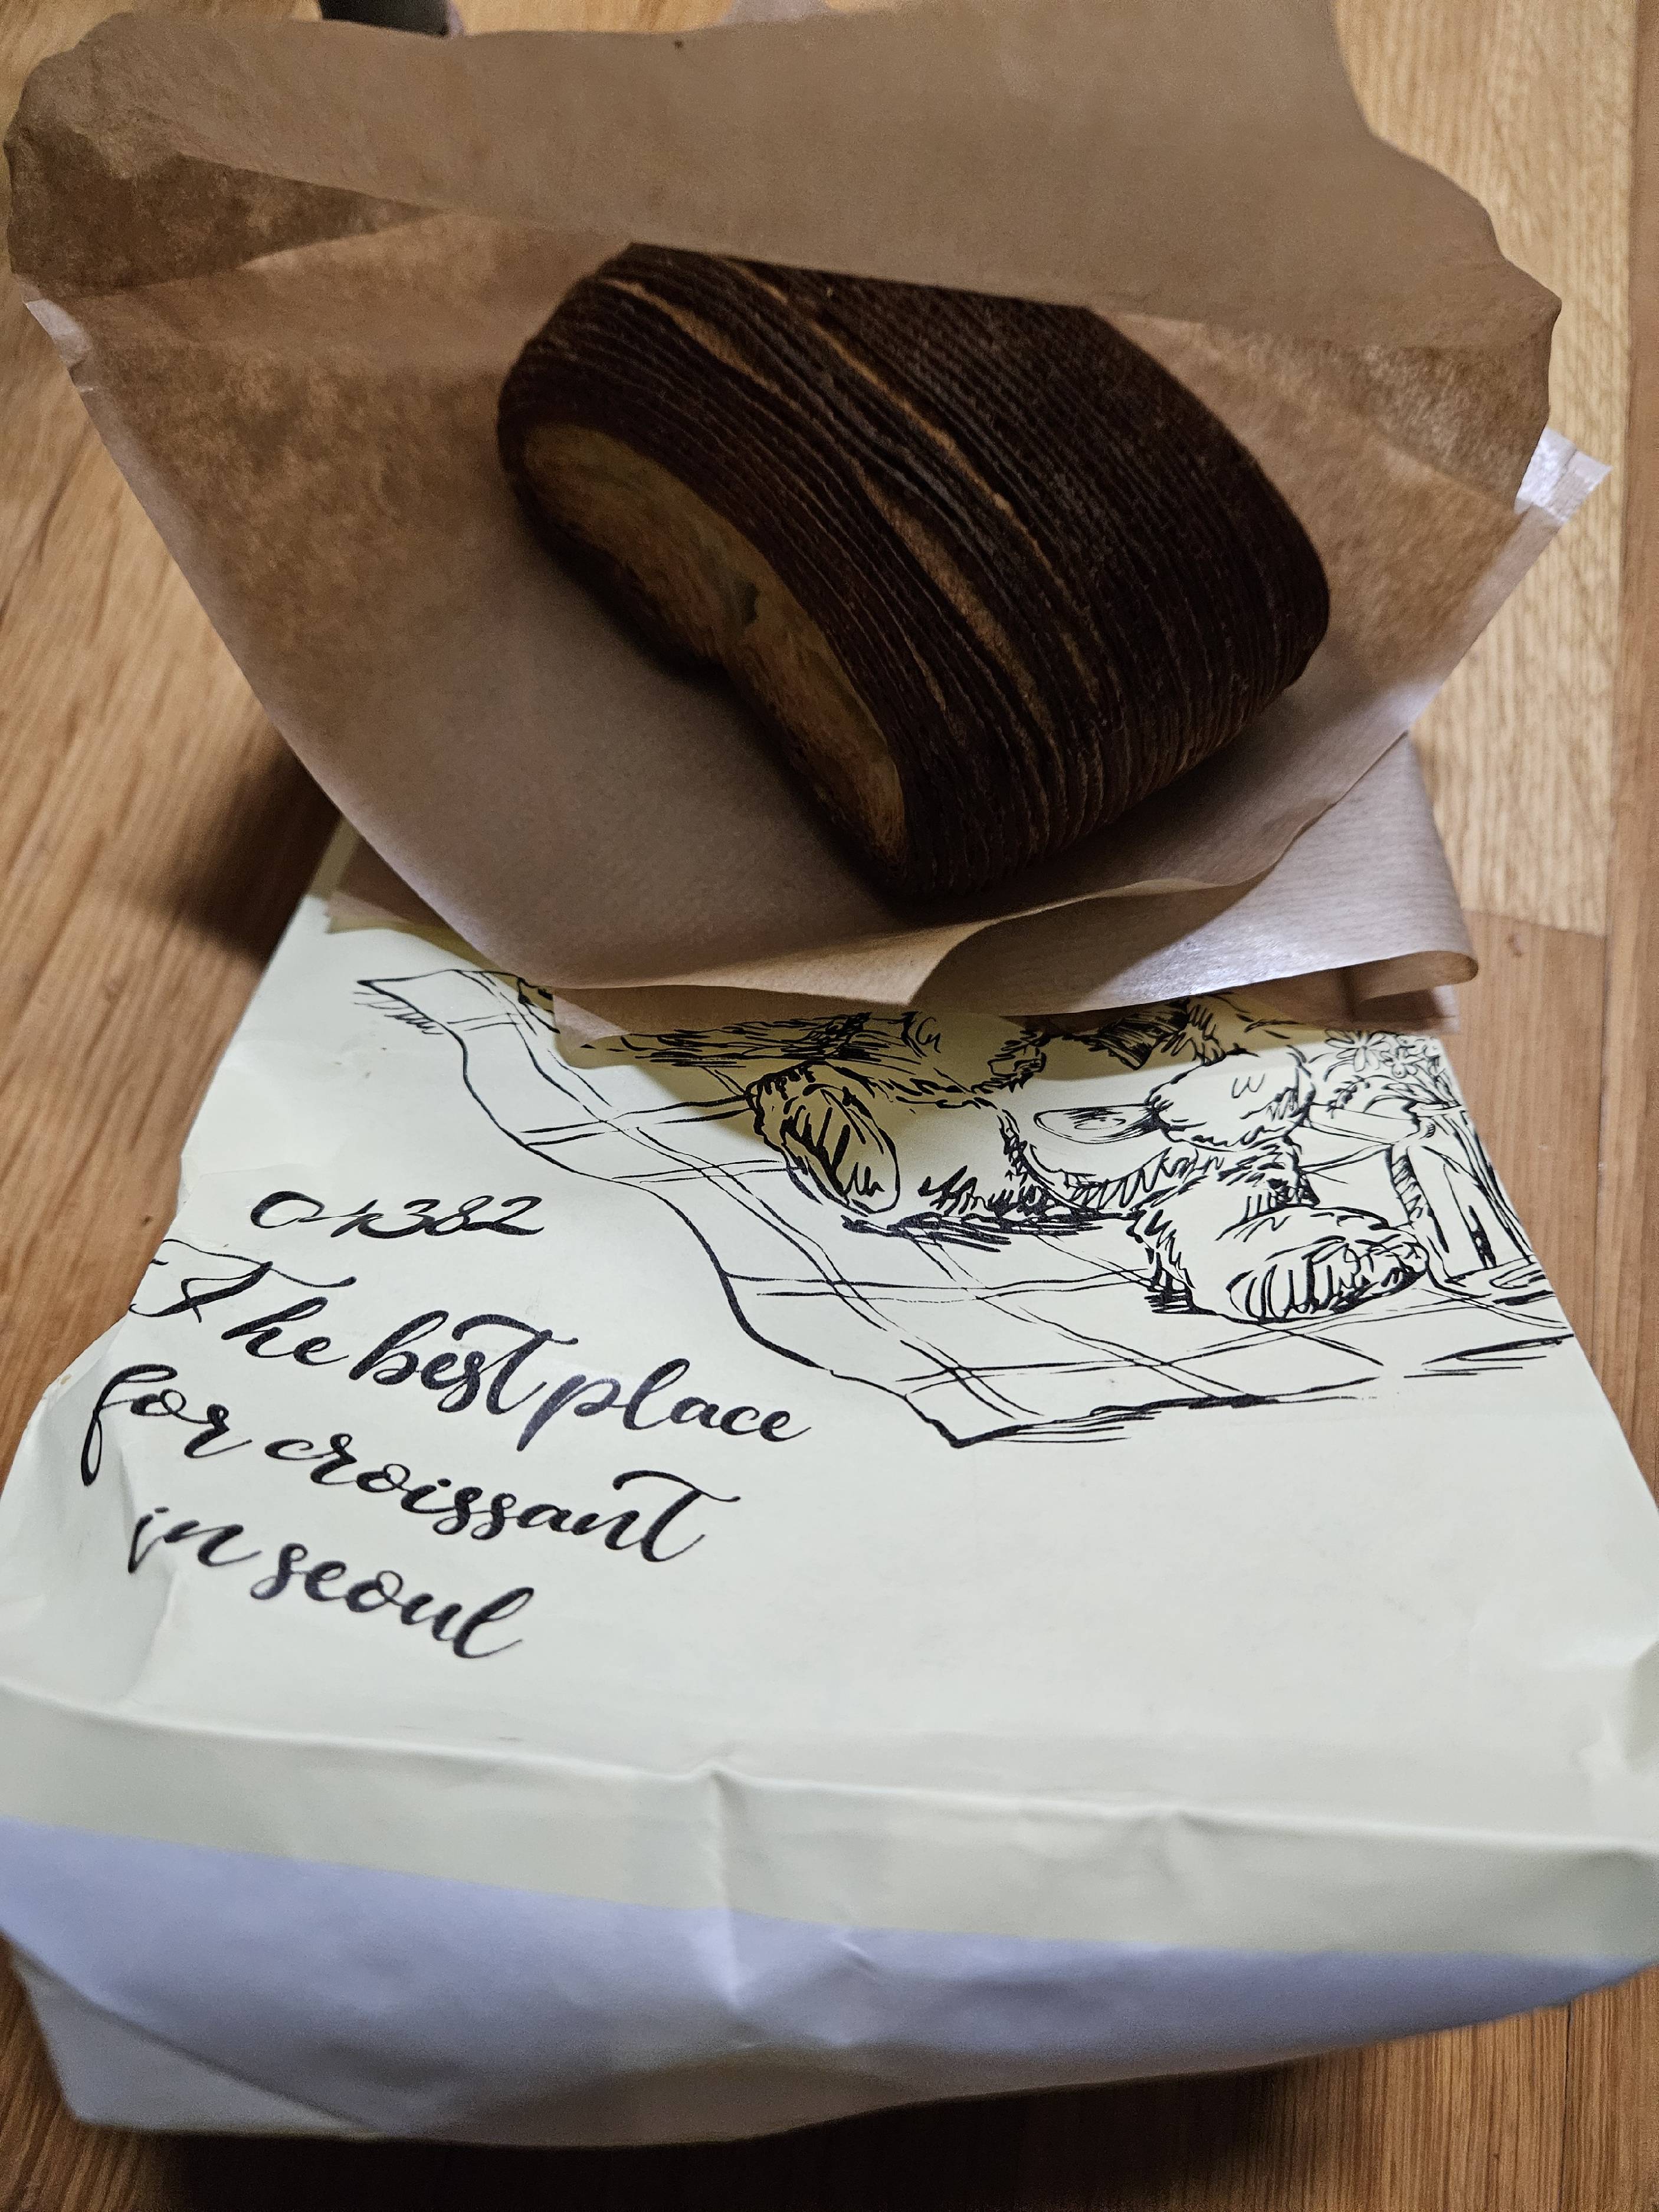 04382
The best place
for croissant
in seoul